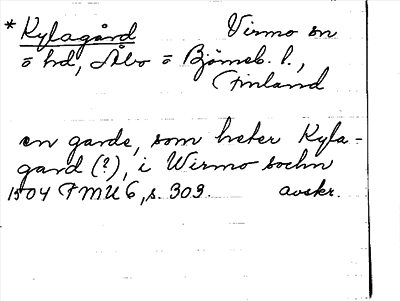 * Kylagård Virmo sn
ö hd, Åbo ö Björneb. l.,
Finland
en garde, som heter Kyla-
gard (?), i Wirmo sochn
1504 FMU 6, s. 303. avskr.